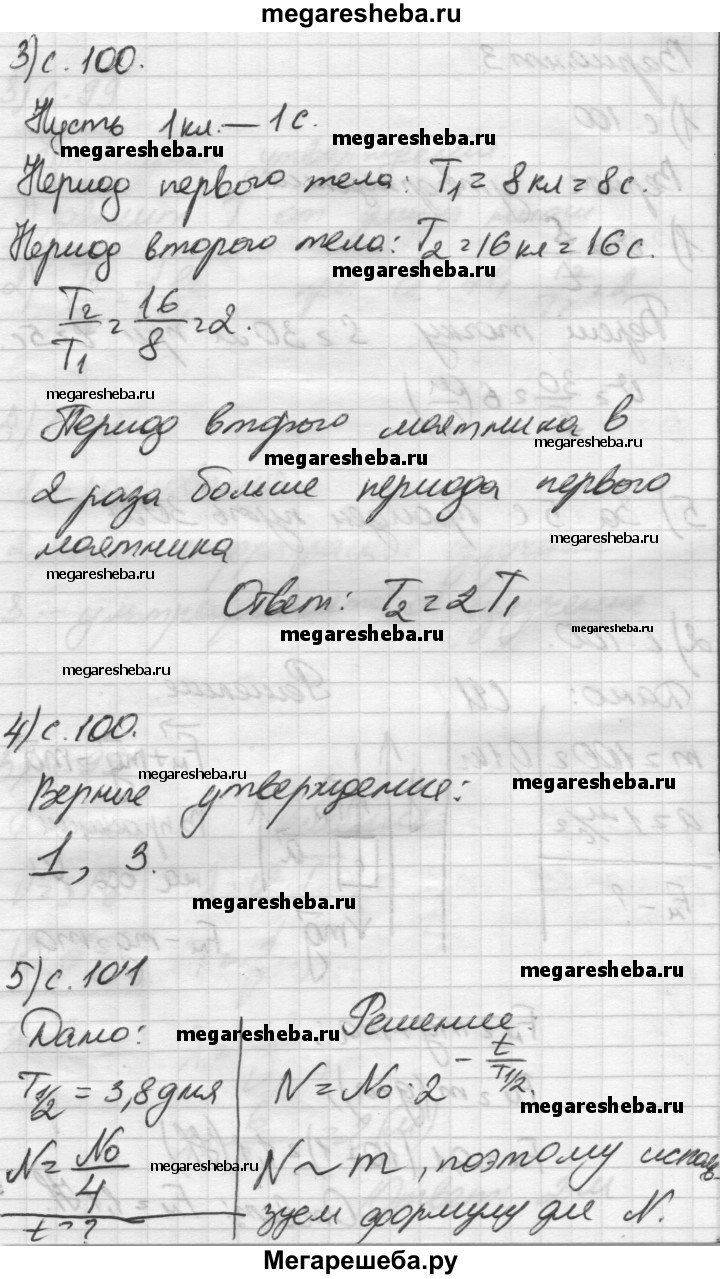 megaresheba.ru
3) с. 100.
Пусть 1 кл. — 1 с.
megaresheba.ru
megaresheba.ru
Период первого тела: T1 = 8 кл = 8 с.
Период второго тела: T2 = 16 кл = 16 с.
megaresheba.ru
T2/T1 = 16/8 = 2.
megaresheba.ru
Период второго маятника в
megaresheba.ru
megaresheba.ru
2 раза больше периода первого
megaresheba.ru
маятника
megaresheba.ru
Ответ: T2 = 2T1
megaresheba.ru
megaresheba.ru
megaresheba.ru
4) с. 100.
megaresheba.ru
megaresheba.ru
Верные утверждение:
1, 3.
megaresheba.ru
5) с. 101
megaresheba.ru
Дано:
megaresheba.ru
Решение:
T1/2 = 3,8 дня
N = N0 · 2^(-t/T1/2).
megaresheba.ru
N = N0/4
megaresheba.ru
N ~ m, поэтому исполь-
t = ?
зуем формулу для N.
Мегарешеба.ру